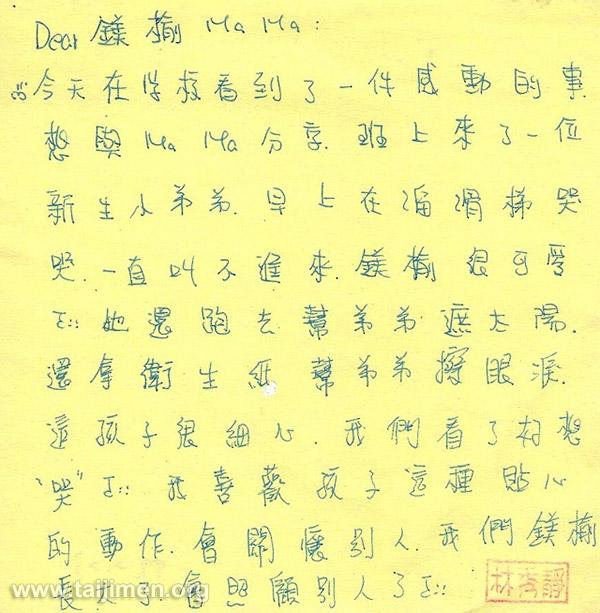 Dear 鎂楡 MaMa:
今天在学校看到了一件感動的事
想與 MaMa 分享. 班上來了一位
新生小弟弟. 早上在溜滑梯哭
哭. 一直叫不進來. 鎂楡很可愛
她還跑去幫弟弟遮太陽.
還拿衛生紙幫弟弟擦眼淚.
這孩子很細心. 我們看了好想
"哭" 我喜歡孩子這種貼心
的動作. 會關懷別人. 我們鎂楡
長大了. 會照顧別人了
林 靜
www.taijimen.org